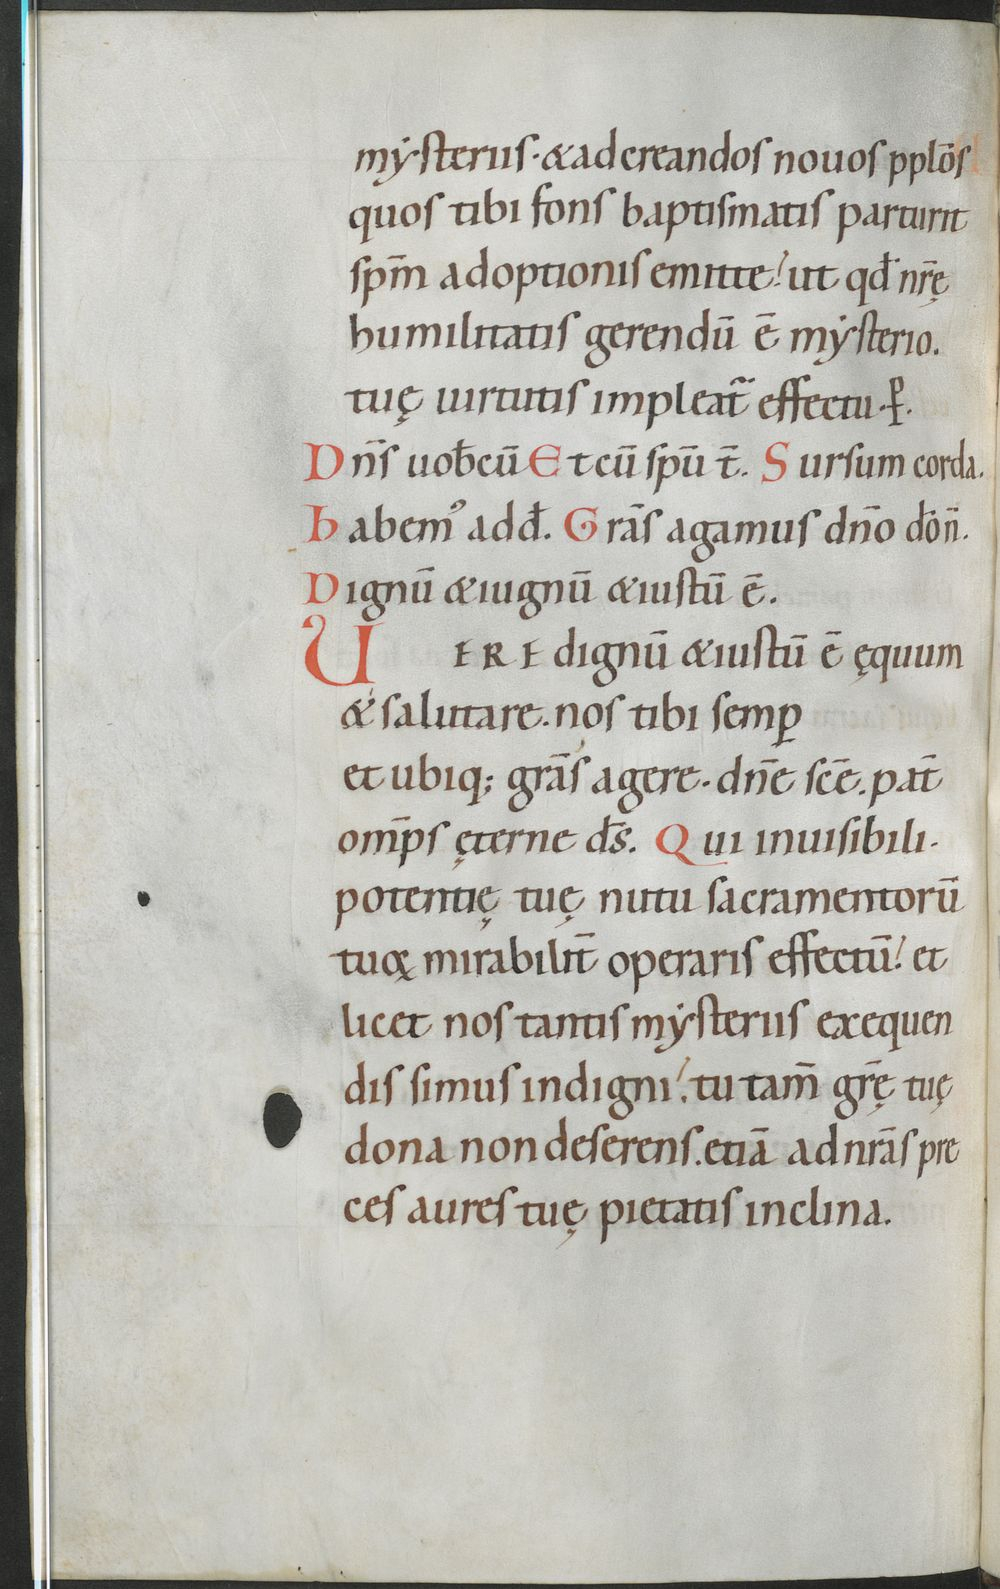 mẏsteriis· & ad creandos nouos pplōs
quos tibi fons baptismatis parturit
spm̄ adoptionis emitte! ut qđ nr̄ę
humilitatis gerendū ē mẏsterio.
tuę uirtutis impleat̄ effectu· P̄.
Dn̄s uob̄cū Et cū spū t̄. Sursum corda.
habem' ad đ. Grās agamus dn̄o dō n̄.
Dignū & iugnū & iustū ē.
UERE dignū & iustū ē ęquum
& salutare. nos tibi semꝑ
et ubiq; grās agere. dn̄e sc̄e. pat̄
om̄ps ęterne d̄s. Qui inuisibili·
potentię tuę nutu sacramentorū
tuoꝝ mirabilit̄ operaris effectū! et
licet nos tantis mẏsteriis exequen
dis simus indigni! tu tam̄ gr̄ę tuę
dona non deserens. etiā ad nrās pre
ces aures tuę pietatis inclina.